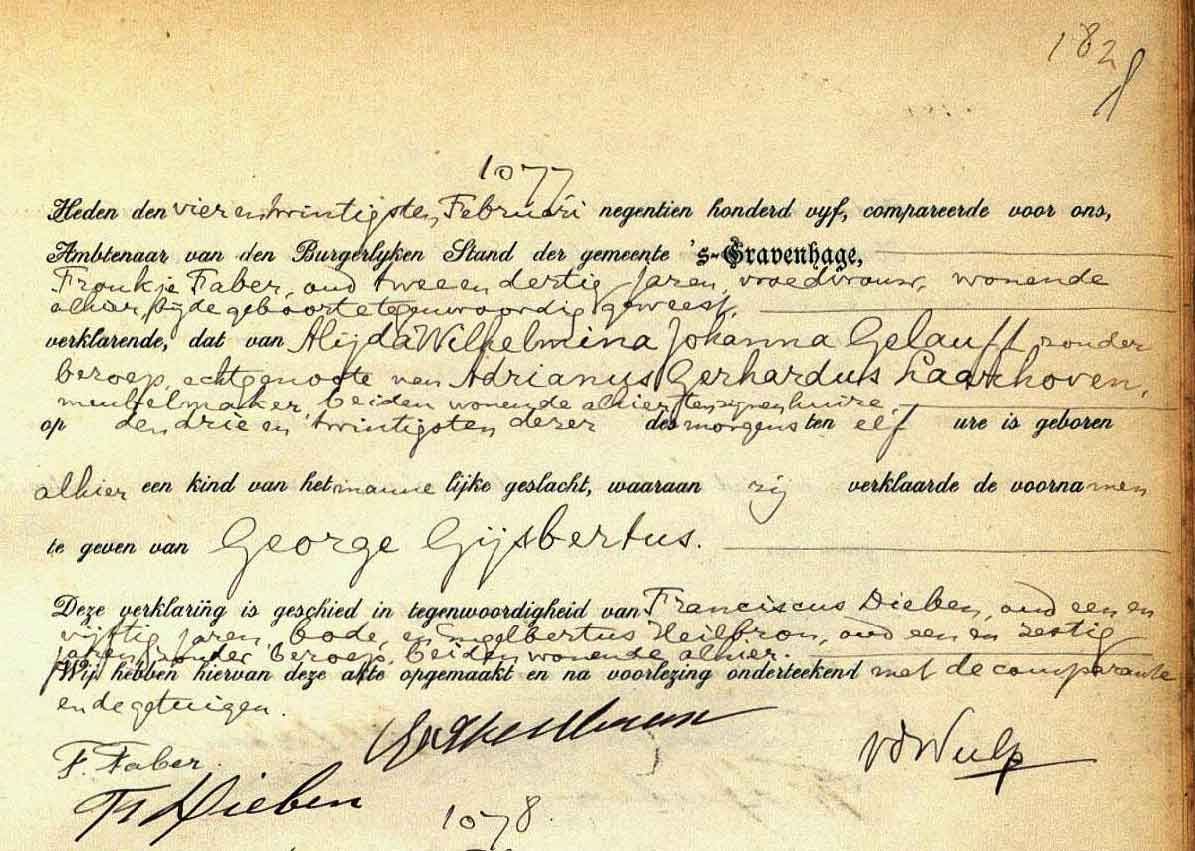 182
1077
Heden den vier en twintigsten Februari negentien honderd vyf, compareerde voor ons,
Ambtenaar van den Burgerlyken Stand der gemeente 's-Gravenhage,
Froukje Faber, oud twee en dertig jaren, vroedvrouw, wonende
alhier, bij de geboorte tegenwoordig geweest,
verklarende, dat van Alijda Wilhelmina Johanna Gelauff, zonder
beroep, echtgenoote van Adrianus Gerhardus Laarhoven,
meubelmaker, beiden wonende alhier, ten zijnen huize,
op den drie en twintigsten dezer des morgens ten elf ure is geboren
alhier een kind van het mannelijke geslacht, waaraan zij verklaarde de voornamen
te geven van George Gijsbertus.
Deze verklaring is geschied in tegenwoordigheid van Franciscus Dieben, oud een en
vijftig jaren, bode, en Engelbertus Heilbron, oud een en zestig
jaren, zonder beroep, beiden wonende alhier.
Wij hebben hiervan deze akte opgemaakt en na voorlezing onderteekend met de comparante
en de getuigen.
F. Faber.
vd Wulp
Fr Dieben
1078.